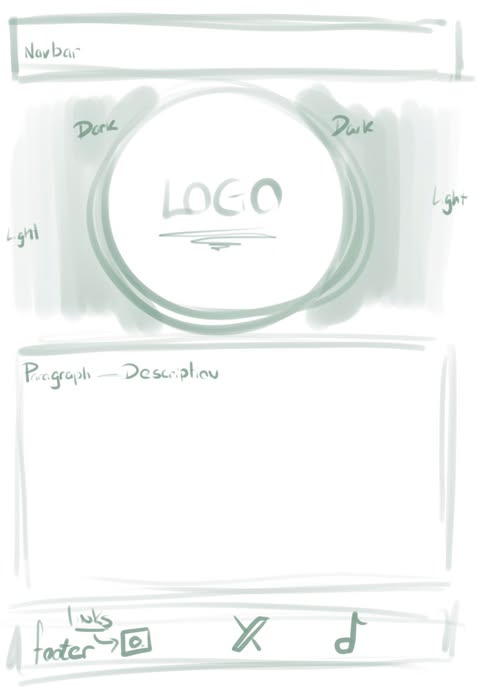 Navbar
Dark
Dark
LOGO
Light
Light
Paragraph — Description
links
footer
X